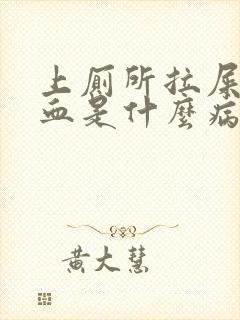 上厕所拉屎
血是什麼病
黄大慧